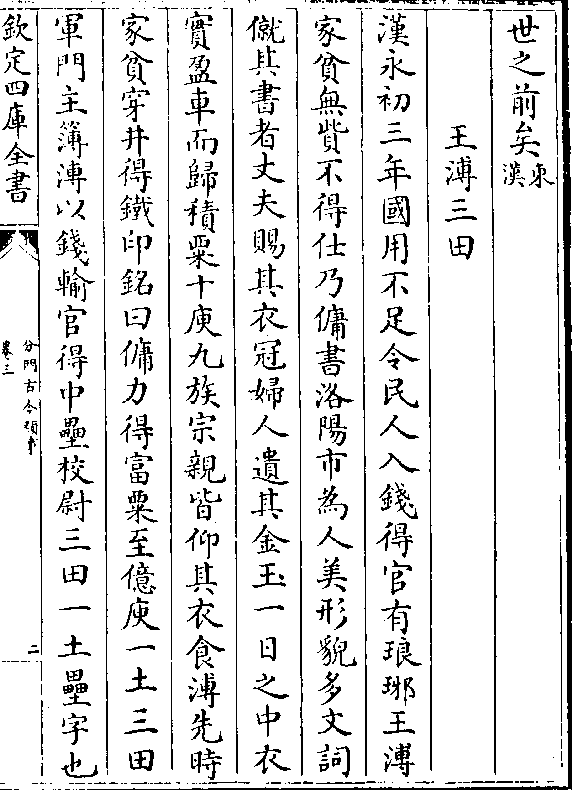 世之前矣東漢
王溥三田
漢永初三年國用不足令民人入錢得官有琅琊王溥
家貧無貲不得仕乃傭書洛陽市為人美形貌多文詞
僦其書者丈夫賜其衣冠婦人遺其金玉一日之中衣
寳盈車而歸積粟十庾九族宗親皆仰其衣食溥先時
家貧穿井得鐵印銘曰傭力得富粟至億庾一土三田
軍門主簿溥以錢輸官得中壘校尉三田一土壘字也
欽定四庫全書
分門古今類事
卷三
二